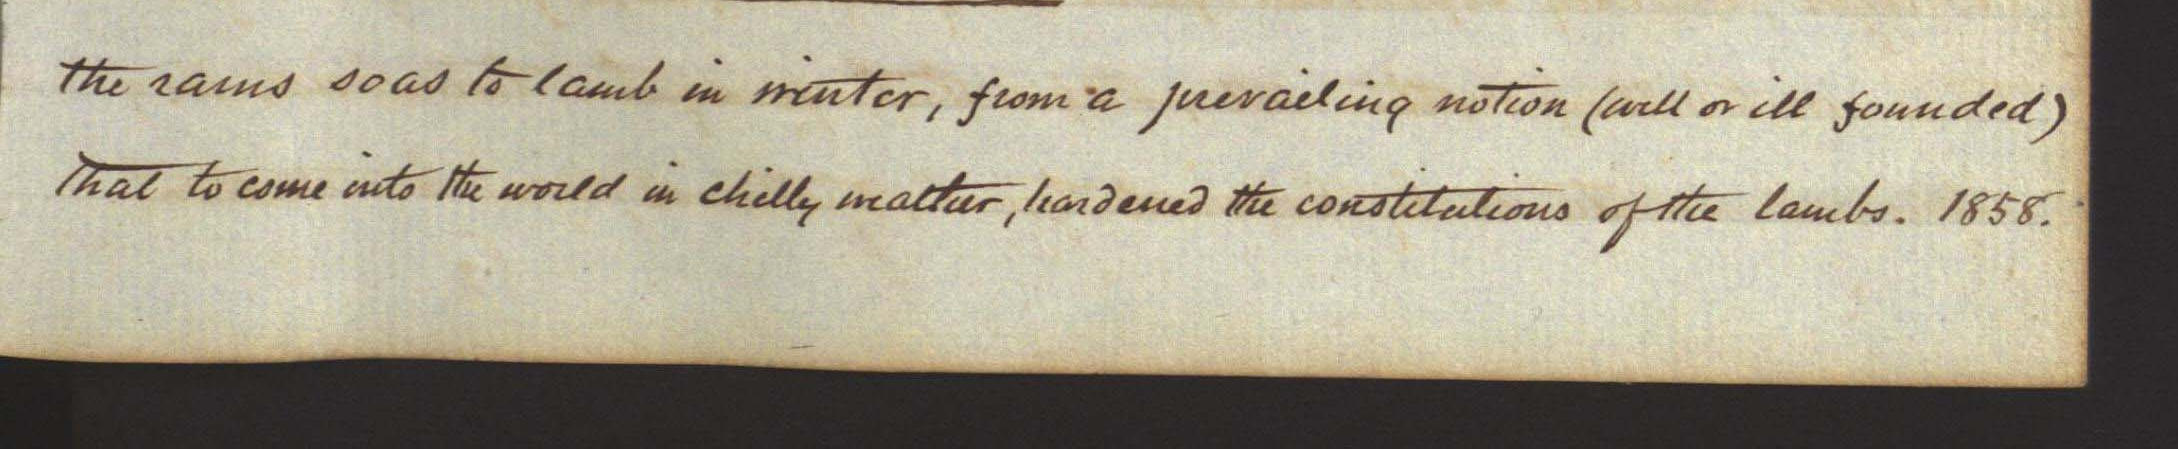 the rams so as to lamb in winter, from a prevailing notion (well or ill founded)
that to come into the world in chilly weather, hardened the constitutions of the lambs. 1858.